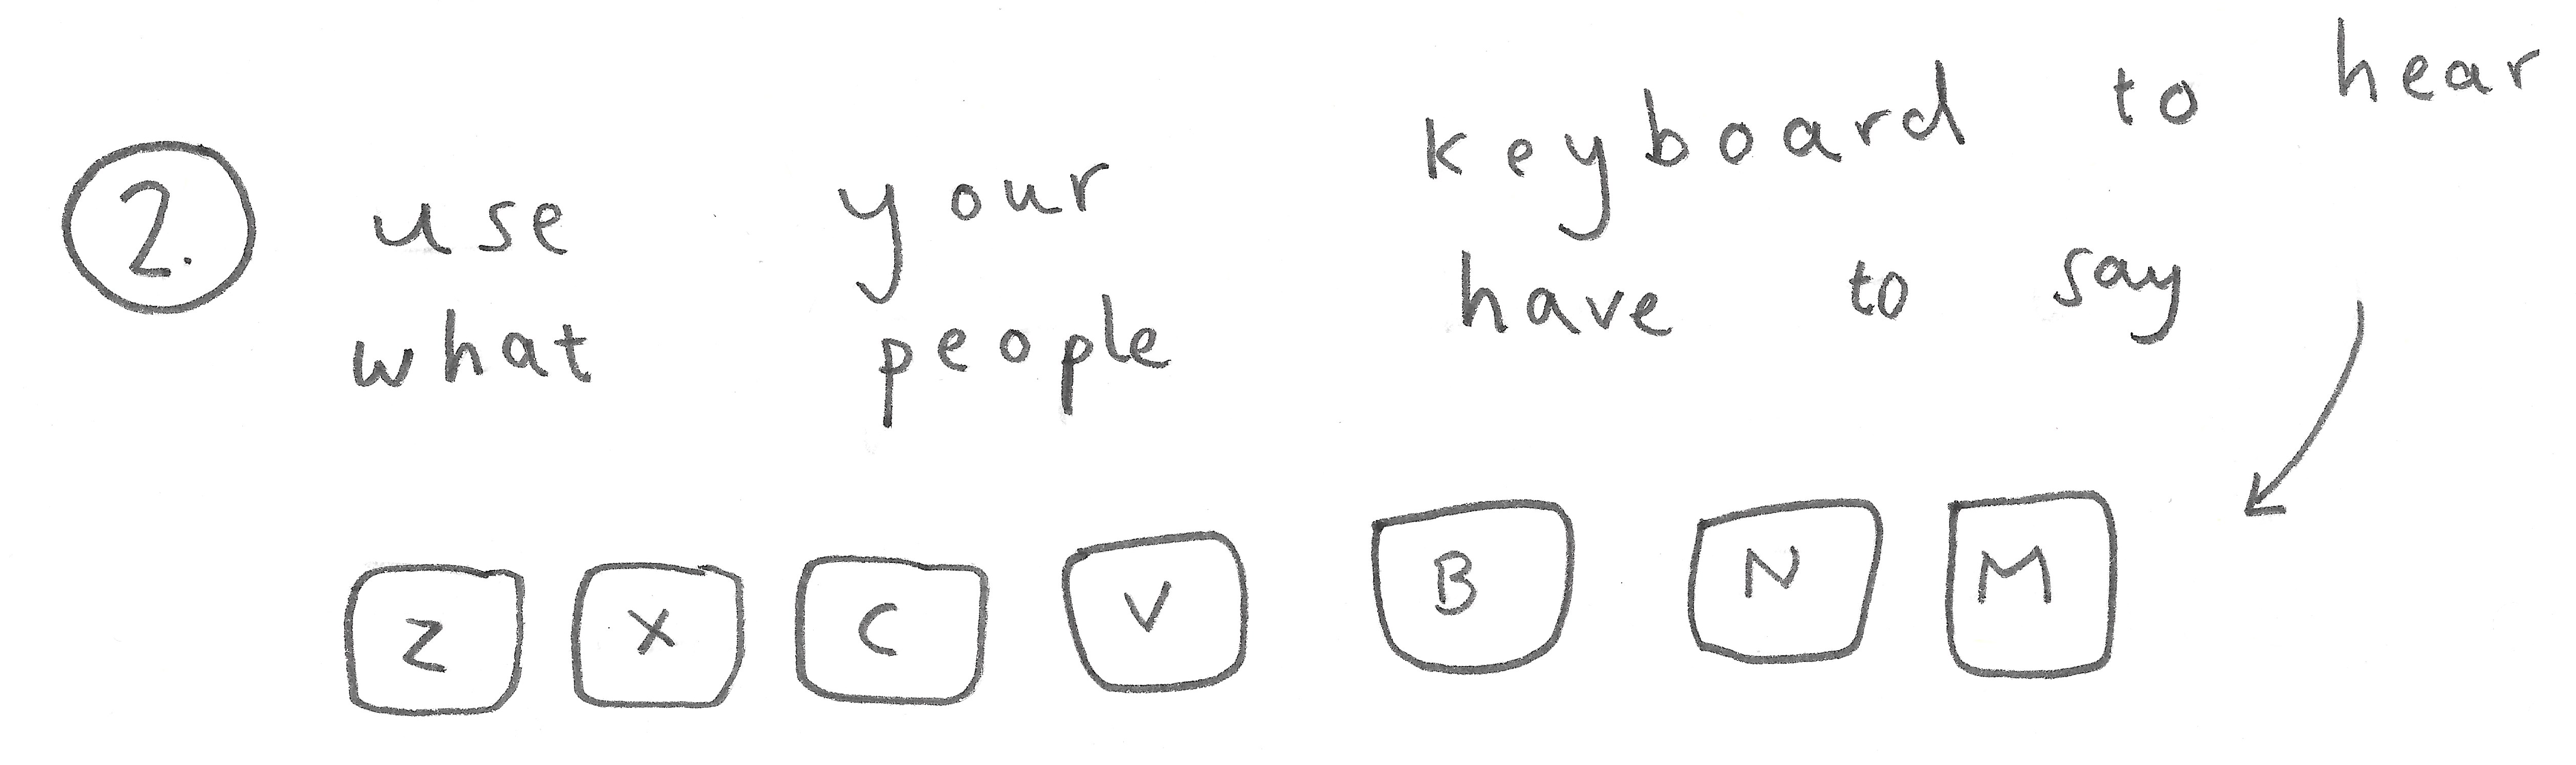 2. use your keyboard to hear
what people have to say
Z X C V B N M